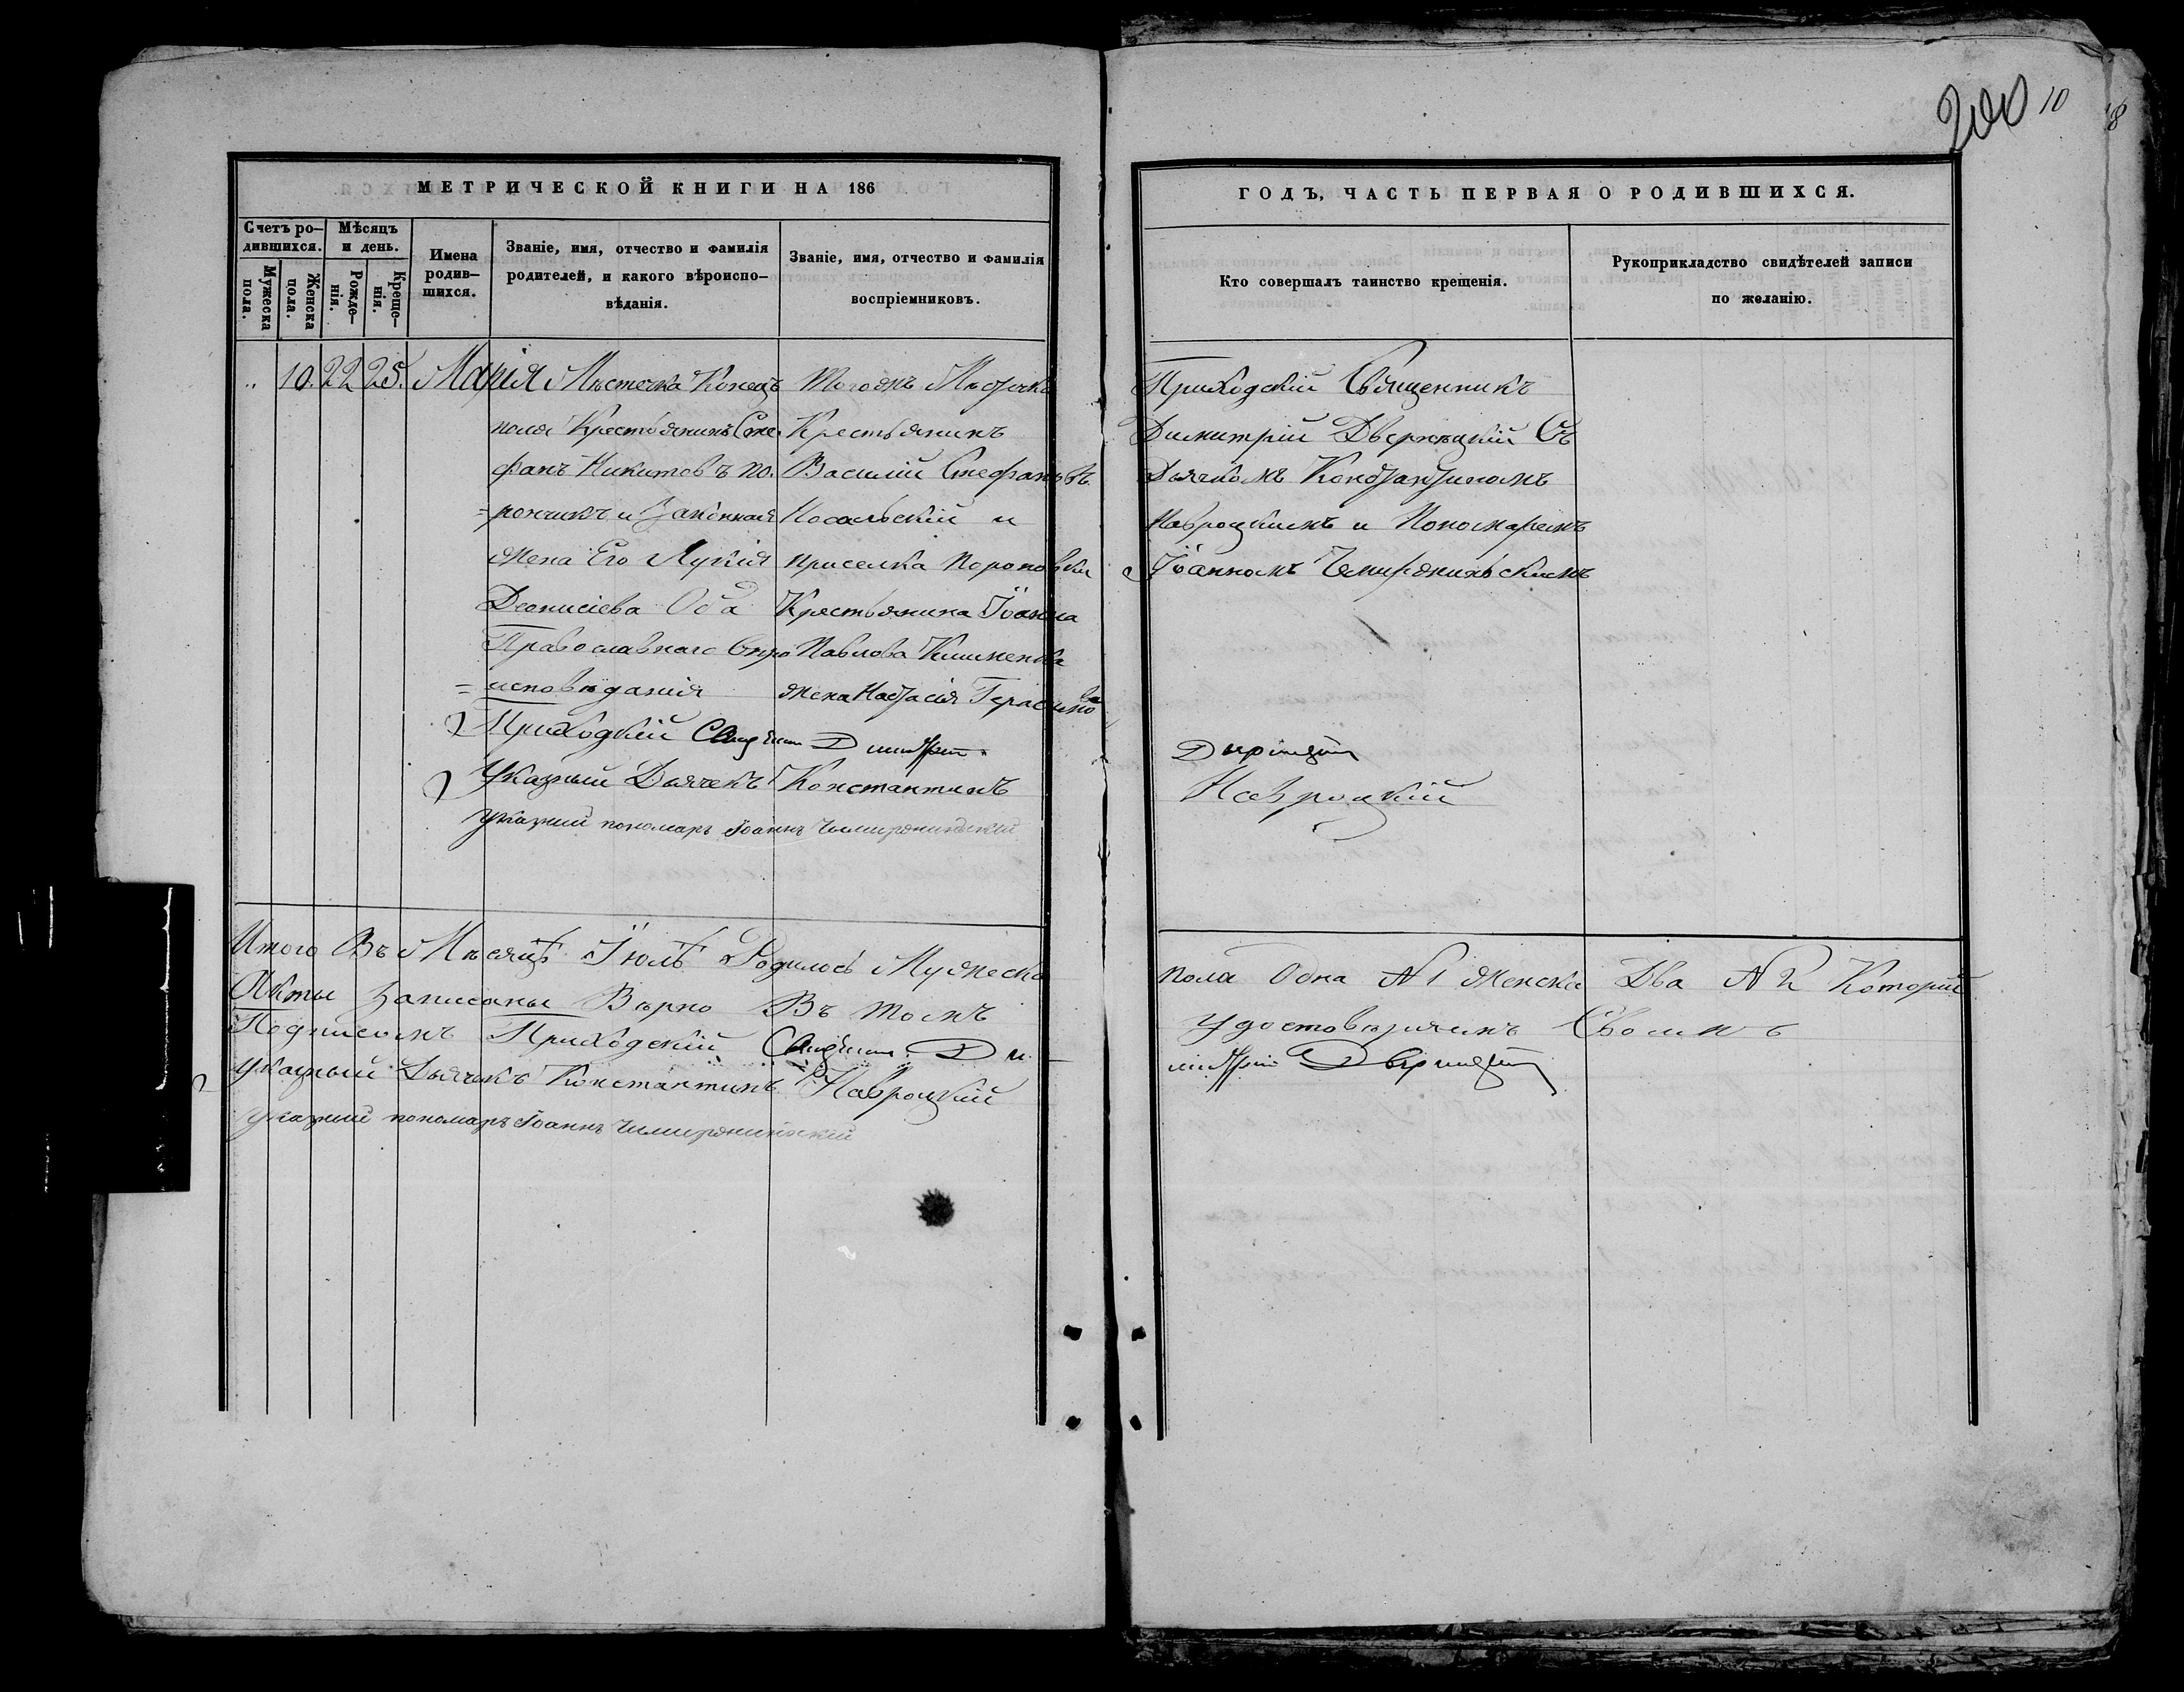 МЕТРИЧЕСКОЙ КНИГИ НА 186
Счетъ ро-
дившихся.
Мѣсяцъ
и день.
Мужеска
пола.
Женска
пола.
Рожде-
нія.
Креще-
нія.
Имена
родив-
шихся.
Званіе, имя, отчество и фамилія
родителей, и какого вѣроиспо-
вѣданія.
Званіе, имя, отчество и фамилія
воспріемниковъ.
10. 22 25. Марія
Мѣстечка Конецъ
поля Крестьянинъ Сте-
фанъ Никитовъ По-
рончикъ и Законная
Жена Его Лукія
Деонисіева Оба
Православнаго
исповѣданія
Тогожъ Мѣстечка
Крестьянинъ
Василій Стефановъ
Носальскій и
приселка
Крестьянина Іоанна
Павлова Клименка
жена Настасія Герасимова
Приходскій Священ Дмитрій
Указный Дьячекъ Константинъ
указный пономарь Іоаннъ
Итого Въ Мѣсяцѣ Іюлѣ Родилось Мужеска
Акты записаны Вѣрно Въ томъ
Подписомъ Приходскій Священ Ди-
указный Дьячекъ Константинъ Навроцкій
указный пономарь Іоаннъ
200 10
8
ГОДЪ, ЧАСТЬ ПЕРВАЯ О РОДИВШИХСЯ.
Кто совершалъ таинство крещенія.
Рукоприкладство свидѣтелей записи
по желанію.
Приходскій Священникъ
Димитрій Дверницкій Съ
Дьячкомъ Константиномъ
Навроцкимъ и Пономаремъ
Іоанномъ
Дверницкій
Навроцкій
пола Одна № 1 Женска Два № 2 Которій
удостовѣряемъ Своимъ
митрій Дверницкій